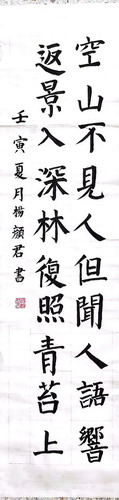 空山不見人但聞人語響
返景入深林復照青苔上
壬寅夏月楊顏君書